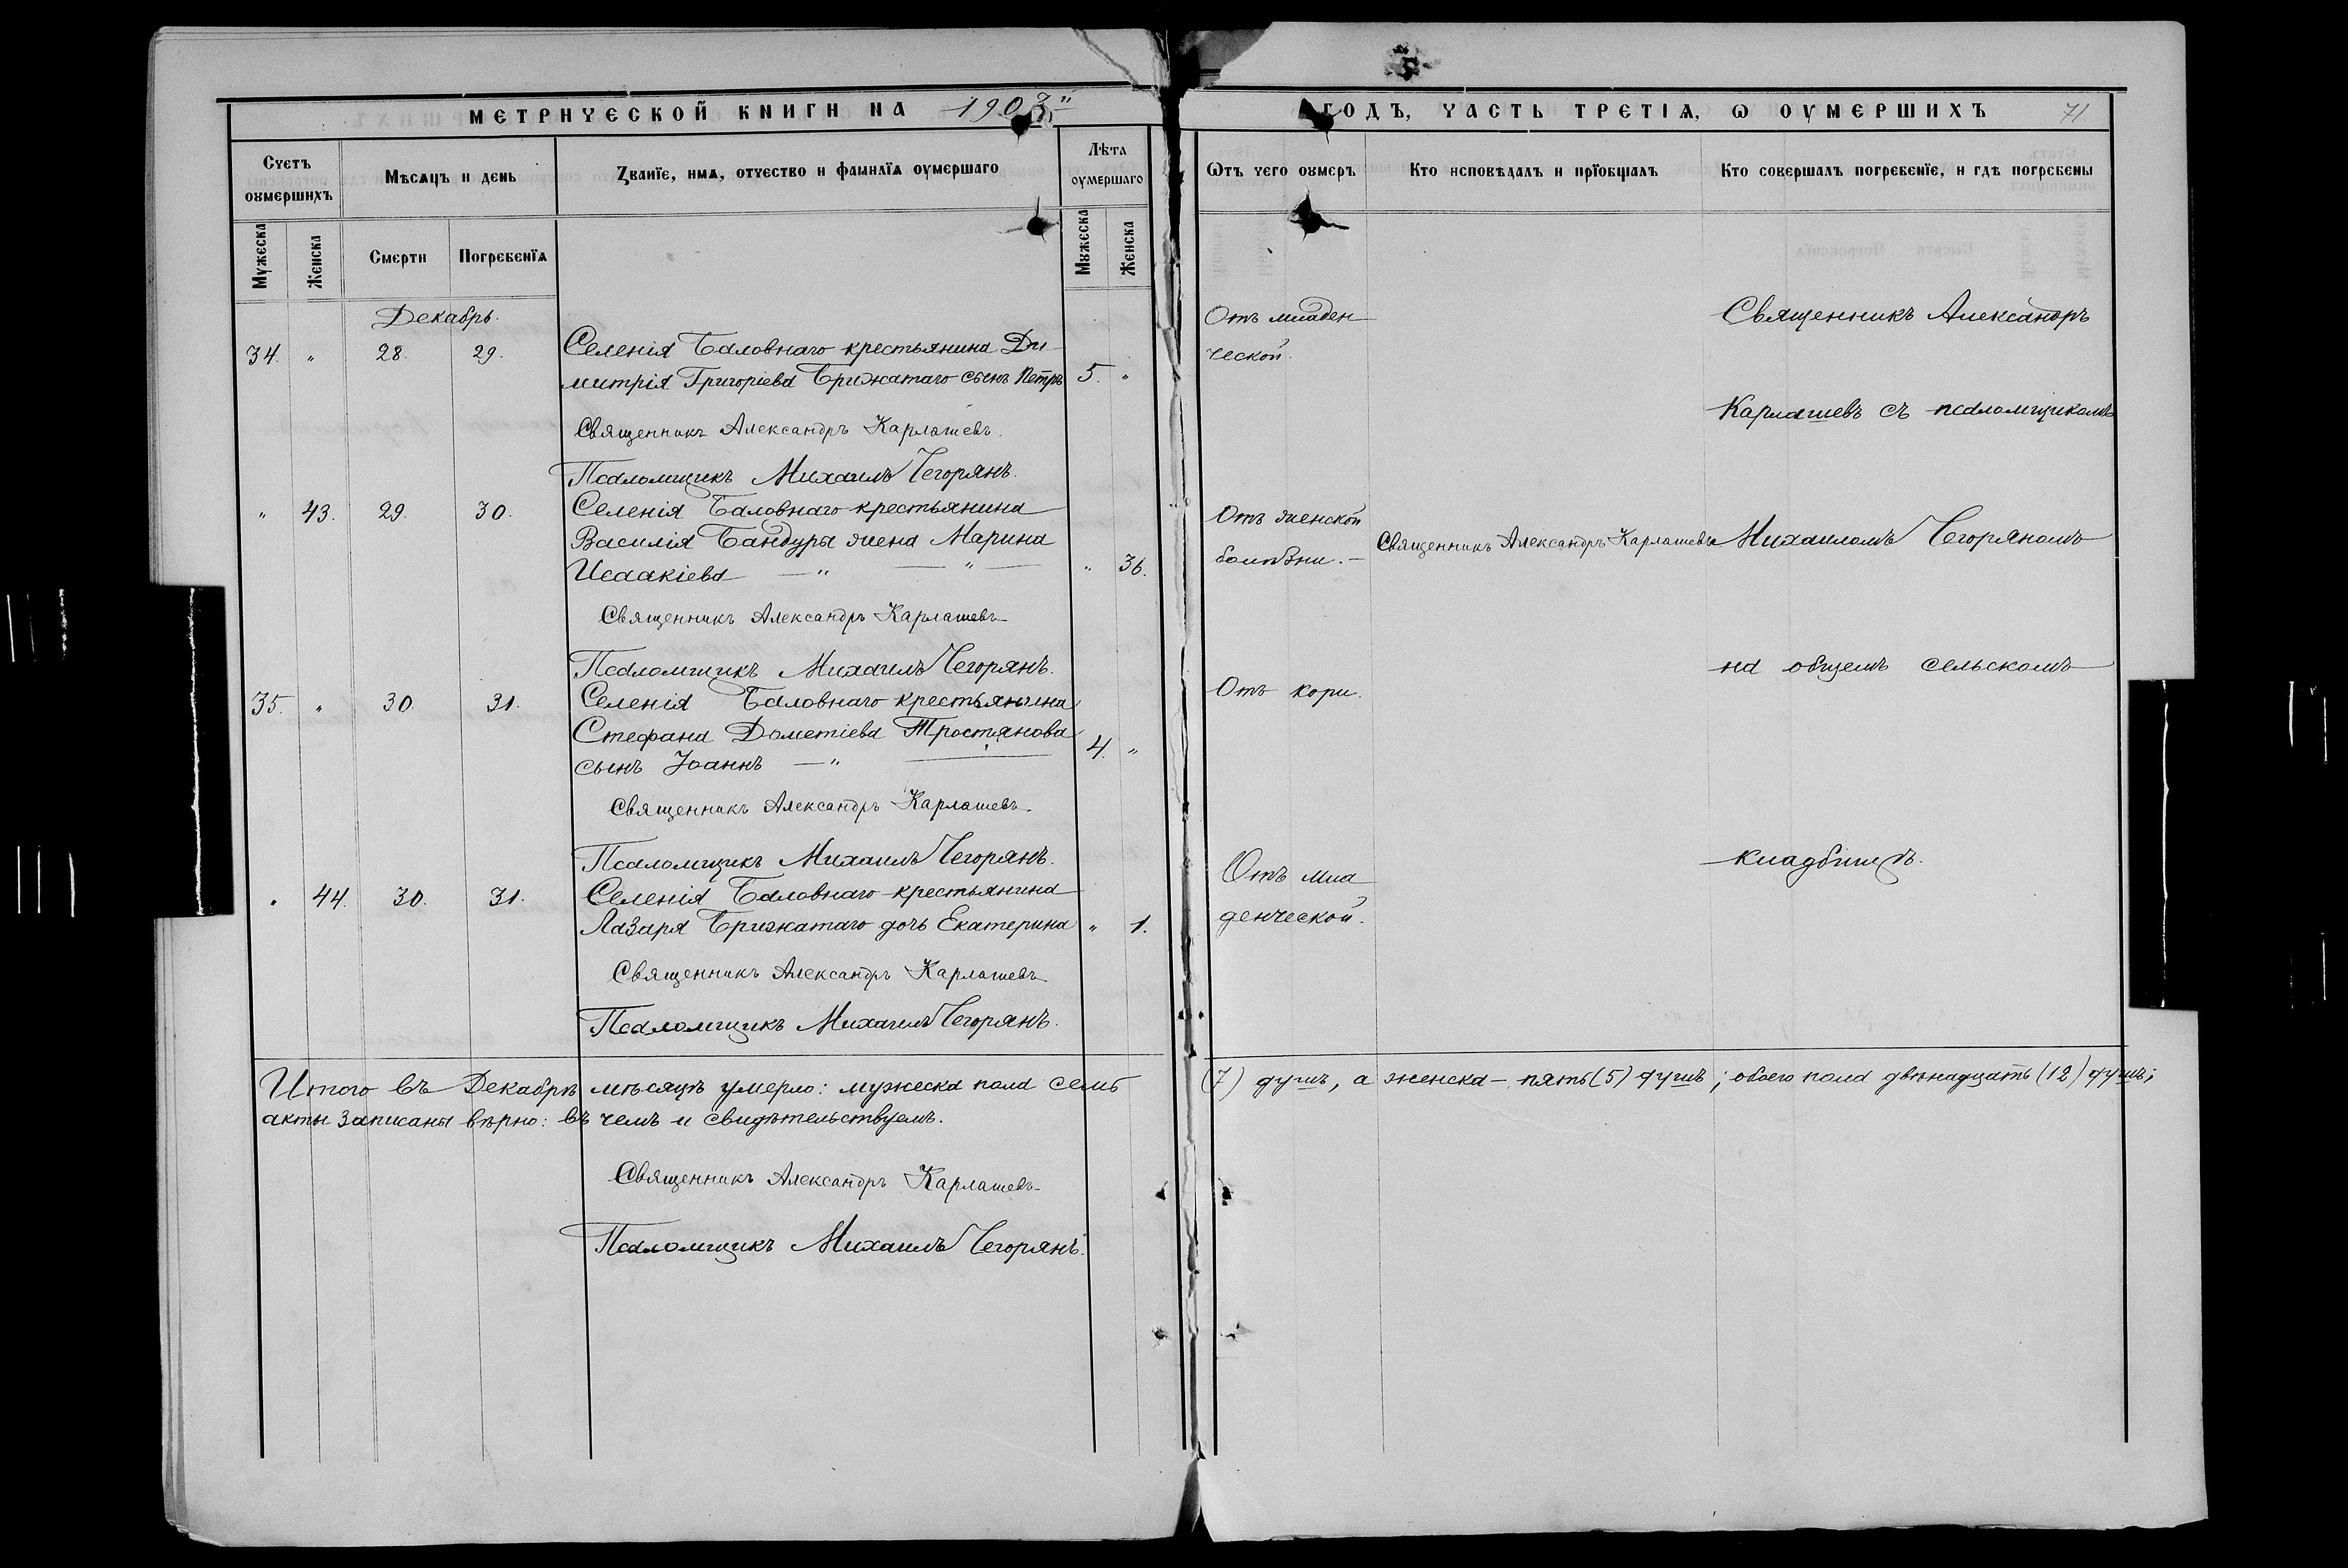 МЕТРИЧЕСКОЙ КНИГИ НА 1903
Счетъ оумершихъ
Мѣсяцъ и день
Званїе, имя, отчество и фамилїя оумершаго
Лѣта оумершаго
Мужеска
Женска
Смерти
Погребенїя
Мужеска
Женска
Декабрь.
34. " 28. 29. Селенія Баловнаго крестьянина Ди-
митрія Григоріева Брижатаго сынъ Петръ 5. "
Священникъ Александръ Карлашевъ.
Псаломщикъ Михаилъ Чегорянъ.
" 43. 29. 30. Селенія Баловнаго крестьянина
Василія Бандуры жена Марина
Исаакіева — " — " — " 36.
Священникъ Александръ Карлашевъ
Псаломщикъ Михаилъ Чегорянъ.
35. " 30. 31. Селенія Баловнаго крестьянина
Стефана Дометіева Тростянова 4. "
сынъ Іоаннъ — "
Священникъ Александръ Карлашевъ.
Псаломщикъ Михаилъ Чегорянъ.
" 44. 30. 31. Селенія Баловнаго крестьянина
Лазаря Брижатаго дочь Екатерина " 1.
Священникъ Александръ Карлашевъ
Псаломщикъ Михаилъ Чегорянъ.
Итого въ Декабрѣ мѣсяцѣ умерло: мужеска пола семь
акты записаны вѣрно: въ чемъ и свидѣтельствуемъ.
Священникъ Александръ Карлашевъ
Псаломщикъ Михаилъ Чегорянъ.
ГОДЪ, ЧАСТЬ ТРЕТІЯ, Ѡ ОУМЕРШИХЪ 71
Ѿтъ чего оумеръ
Кто исповѣдалъ и прїобщалъ
Кто совершалъ погребенїе, и гдѣ погребены
Отъ младен
ческой.
Священникъ Александръ
Карлашевъ съ псаломщикомъ
Отъ женской
болѣзни. —
Священникъ Александръ Карлашевъ
Михаиломъ Чегоряномъ
на общемъ сельскомъ
Отъ кори.
кладбищѣ.
Отъ мла
денческой.
(7) душъ, а женска — пять (5) душъ; обоего пола двѣнадцать (12) душъ;